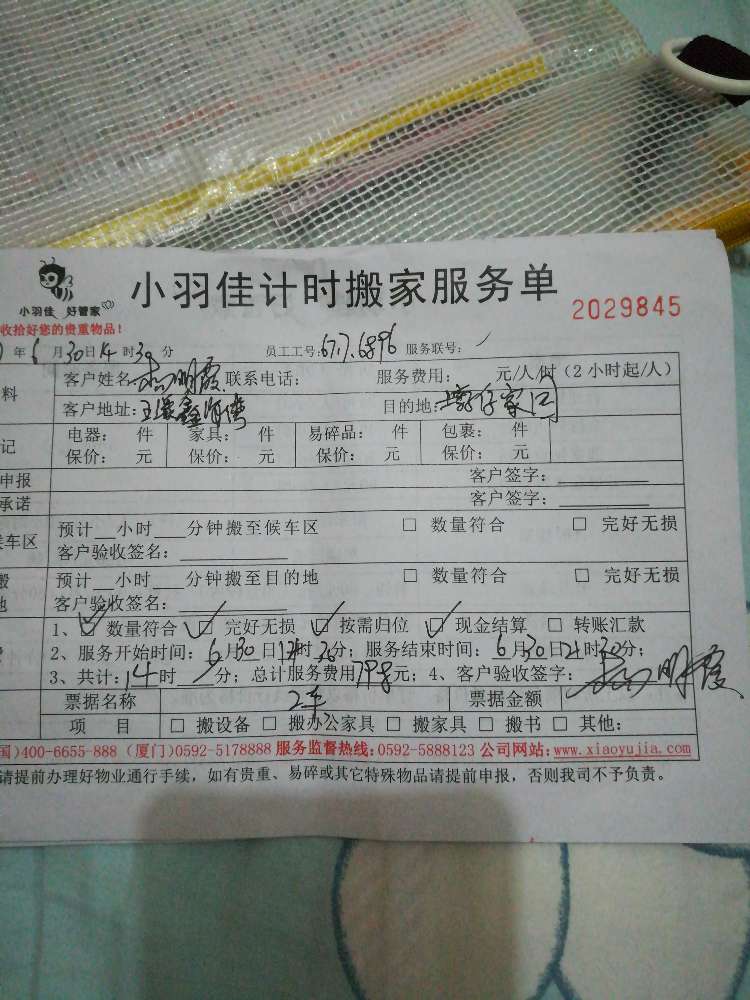 小羽佳计时搬家服务单
小羽佳 好管家
2029845
收拾好您的贵重物品!
年6月30日14时30分 员工工号: 677.6896 服务联号: /
料 客户姓名: 明霞 联系电话: 服务费用: 元/人/时(2小时起/人)
客户地址: 目的地:
记 电器: 件 家具: 件 易碎品: 件 包裹: 件
保价: 元 保价: 元 保价: 元 保价: 元
申报 客户签字:
承诺 客户签字:
车区 预计__小时___分钟搬至候车区 □ 数量符合 □ 完好无损
客户验收签名:
搬 预计__小时___分钟搬至目的地 □ 数量符合 □ 完好无损
地 客户验收签名:
1、☑ 数量符合 ☑ 完好无损 ☑ 按需归位 ☑ 现金结算 □ 转账汇款
2、服务开始时间: 6月30日 时30分; 服务结束时间: 6月30日21时30分;
3、共计: 14时 分; 总计服务费用798元; 4、客户验收签字: 明霞
票据名称 2车 票据金额
项 目 □ 搬设备 □ 搬办公家具 □ 搬家具 □ 搬书 □ 其他:
国)400-6655-888 (厦门)0592-5178888 服务监督热线:0592-5888123 公司网站:www.xiaoyujia.com
请提前办理好物业通行手续, 如有贵重、易碎或其它特殊物品请提前申报, 否则我司不予负责。